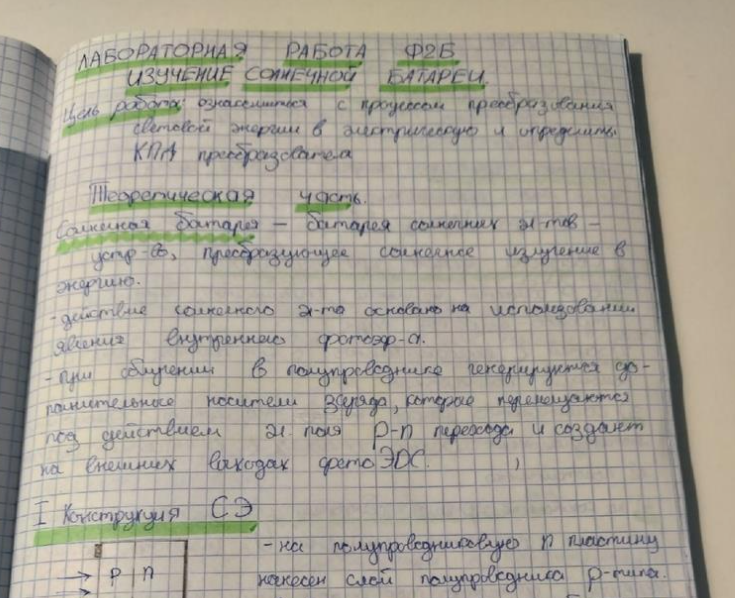 ЛАБОРАТОРНАЯ РАБОТА Ф2Б
ИЗУЧЕНИЕ СОЛНЕЧНОЙ БАТАРЕИ.
Цель работы: ознакомиться с процессом преобразования
световой энергии в электрическую и определить
КПД преобразователя
Теоретическая часть.
Солнечная батарея – батарея солнечных эл-тов –
устр-в, преобразующее солнечное излучение в
энергию.
- действие солнечного эл-та основано на использовании
явления внутреннего фотоэф-а.
- при облучении в полупроводнике генерируются до-
полнительные носители заряда, которые перемещаются
под действием эл. поля p-n перехода и создают
на внешних выходах фото ЭДС.
I Конструкция СЭ
- на полупроводниковую n пластину
нанесен слой полупроводника p-типа.
P n